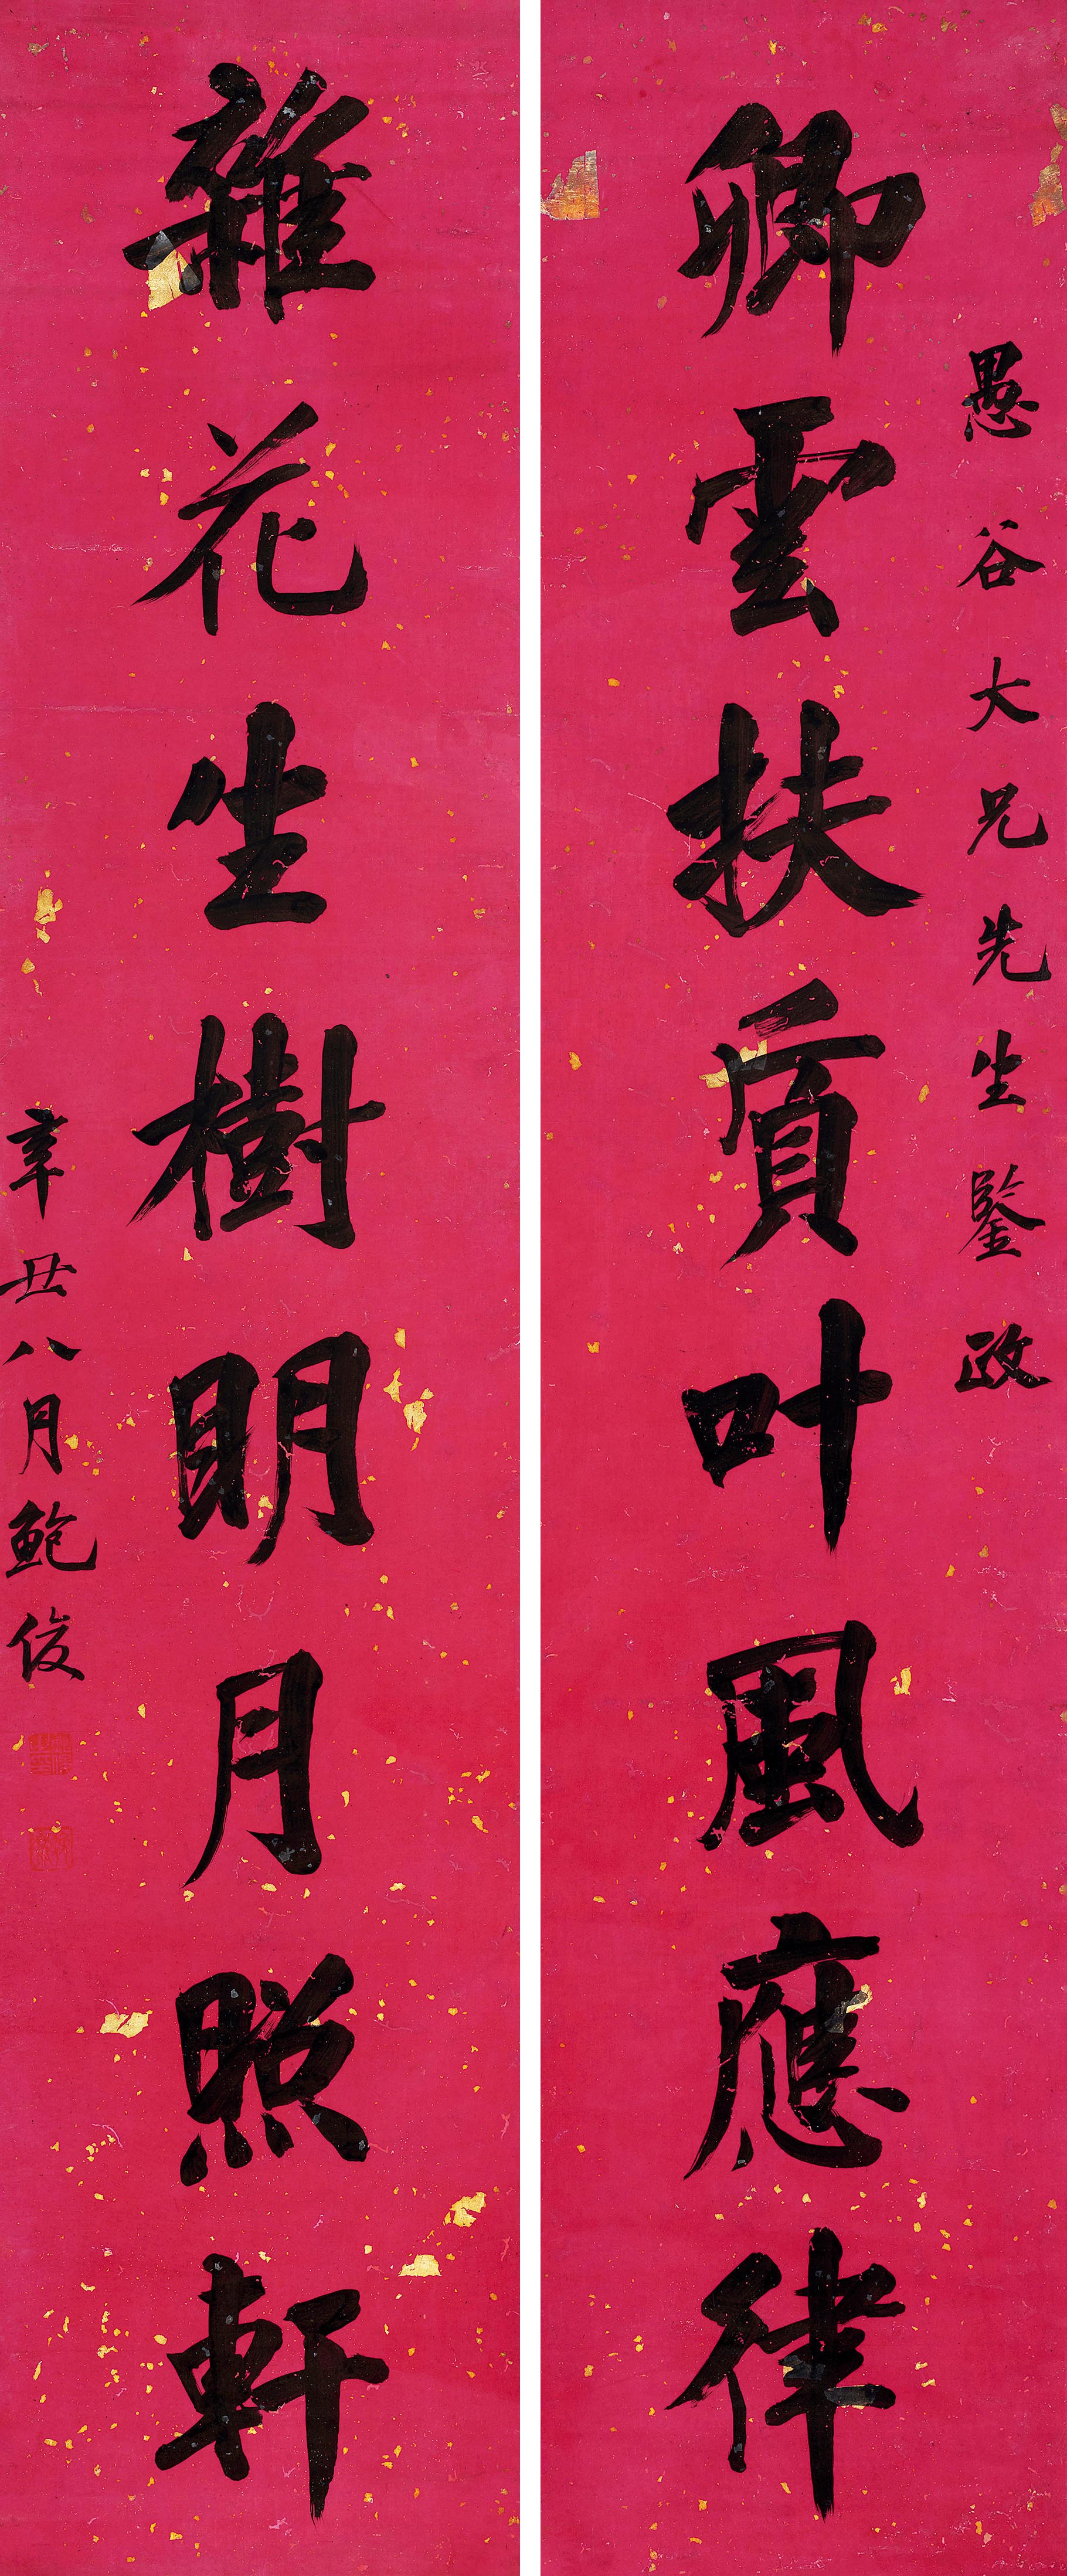 愚谷大兄先生鋻政
卿雲扶質叶風應律
雜花生樹眀月照軒
辛丑八月鮑俊